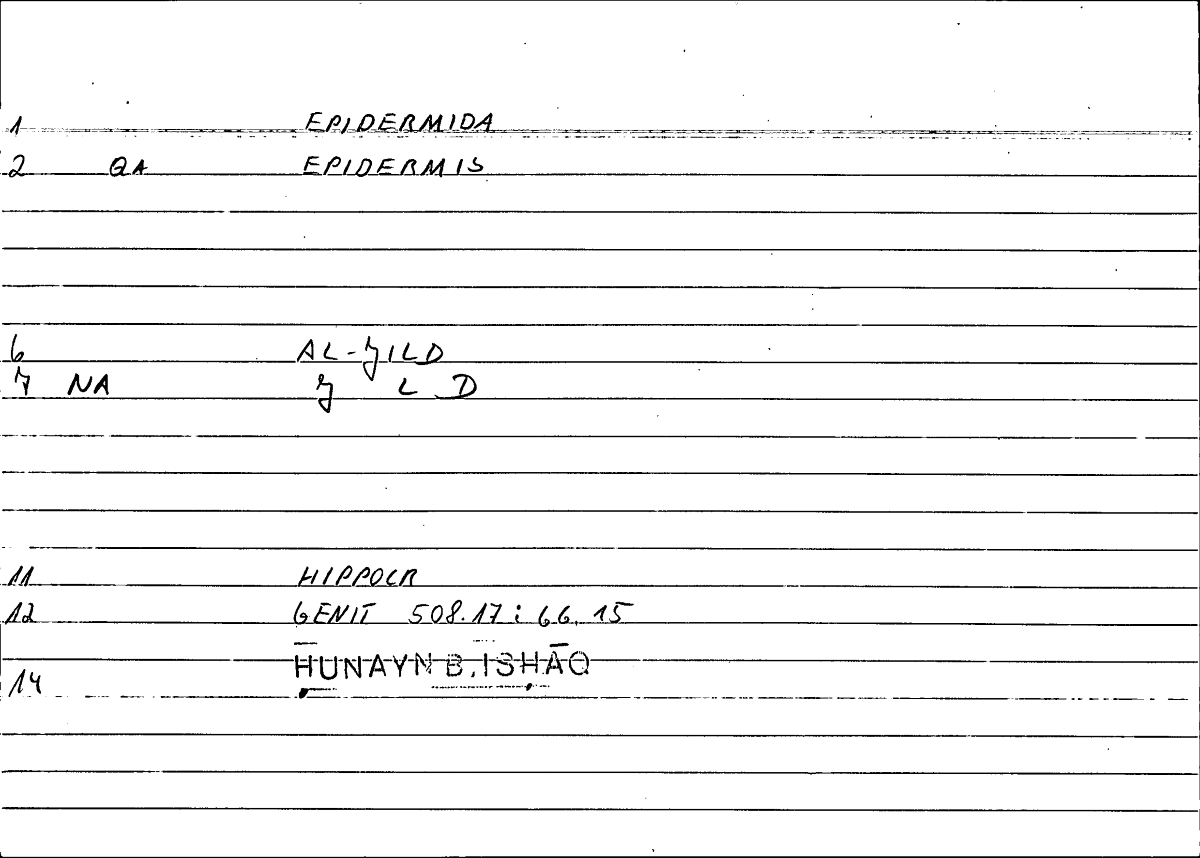 1 EPIDERMIDA
2 QA EPIDERMIS
6 AL-ǦILD
7 NA Ǧ L D
11 HIPPOCR
12 GENIT 508.17 : 66.15
ḤUNAYN B. ISḤĀQ
14